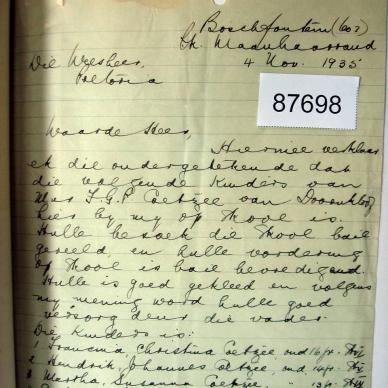 Boschfontein (602)
Maanhaarrand
Die Weesheer, 4 Nov. 1935
Pretoria
87698
Waarde Heer,
Hiermee verklaar
ek die ondergetekende dat
die volgende kinders van
Mnr. J.G.P. Coetzee van Doornkloof
hier by my op skool is.
Hulle besoek die skool baie
gereeld, en hulle vordering
op skool is baie bevredigend.
Hulle is goed gekleed en volgens
my mening word hulle goed
versorg deur die vader.
Die kinders is:
1 Francina Christina Coetzee, oud 16 jr.
2 Hendrik Johannes Coetzee, oud 14 jr.
3 Martha Susanna Coetzee, 13 jr.